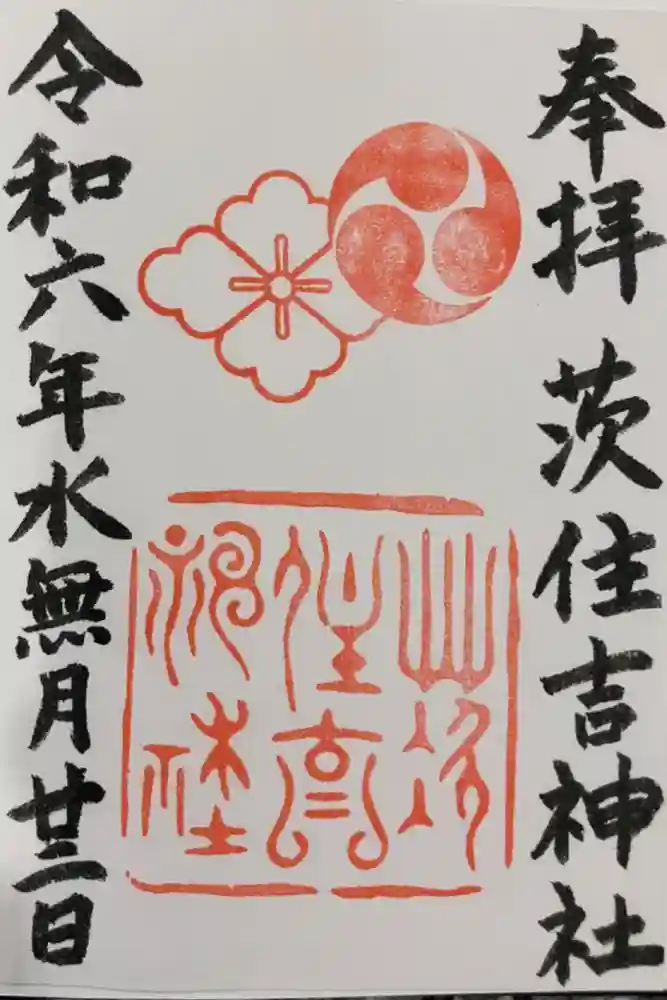 奉拝 茨住吉神社
茨住吉神社
令和六年水無月廿三日